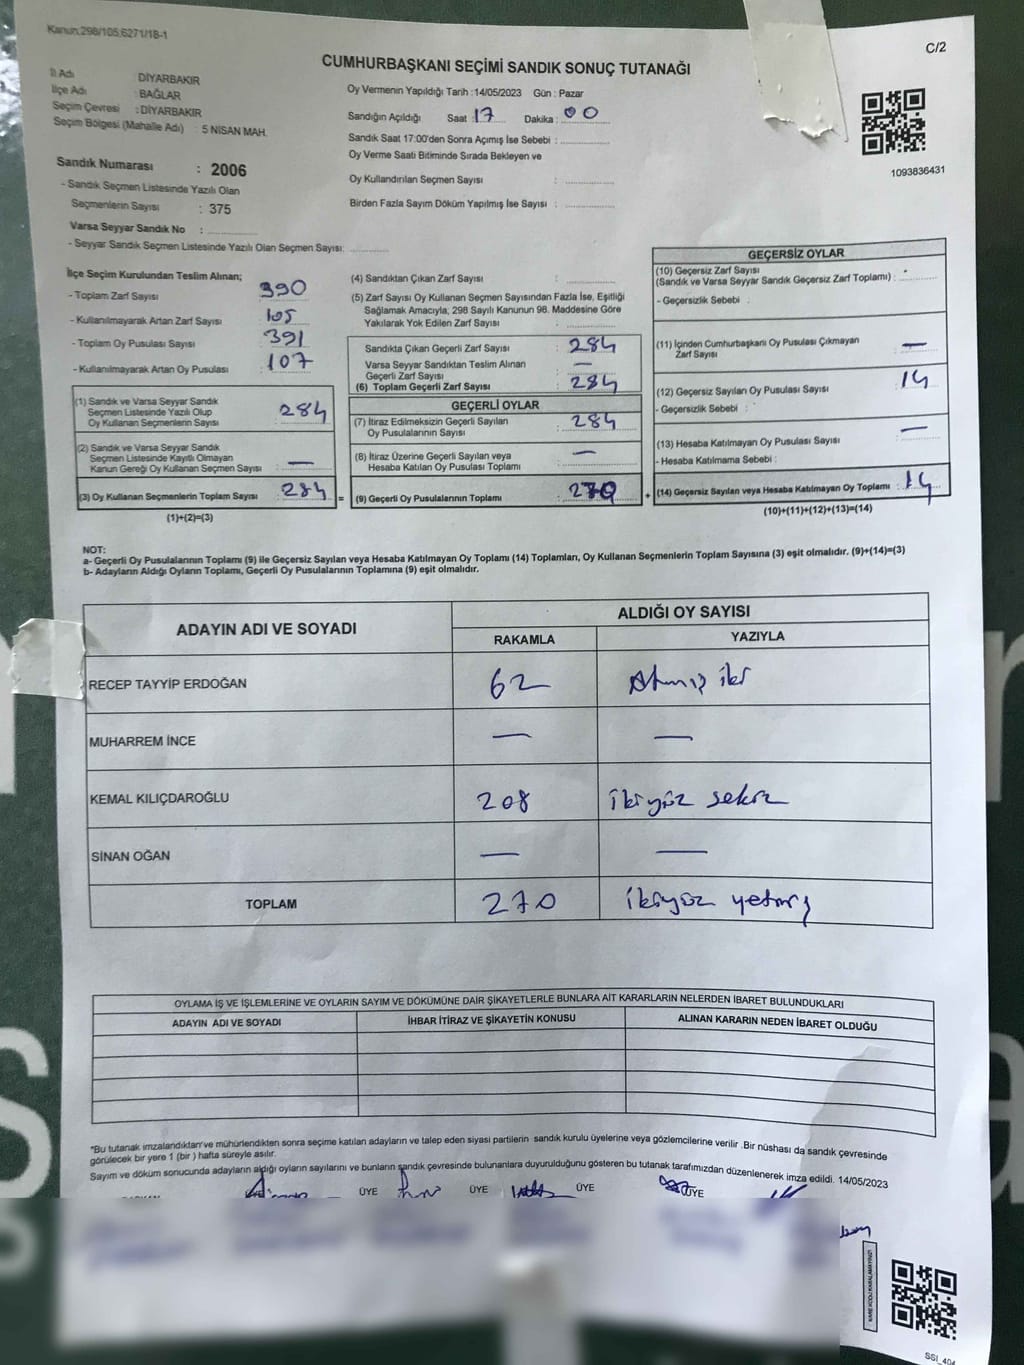 Kanun:298/105;6271/18-1
C/2
CUMHURBAŞKANI SEÇİMİ SANDIK SONUÇ TUTANAĞI
İl Adı : DİYARBAKIR
İlçe Adı : BAĞLAR
Seçim Çevresi : DİYARBAKIR
Seçim Bölgesi (Mahalle Adı) : 5 NİSAN MAH.
Oy Vermenin Yapıldığı Tarih :14/05/2023 Gün : Pazar
Sandığın Açıldığı Saat : 17 Dakika : 00
Sandık Saat 17:00'den Sonra Açımış İse Sebebi :
Oy Verme Saati Bitiminde Sırada Bekleyen ve
Oy Kullandırılan Seçmen Sayısı :
Birden Fazla Sayım Döküm Yapılmış İse Sayısı :
1093836431
Sandık Numarası : 2006
- Sandık Seçmen Listesinde Yazılı Olan
Seçmenlerin Sayısı : 375
Varsa Seyyar Sandık No :
- Seyyar Sandık Seçmen Listesinde Yazılı Olan Seçmen Sayısı:
İlçe Seçim Kurulundan Teslim Alınan;
- Toplam Zarf Sayısı : 390
- Kullanılmayarak Artan Zarf Sayısı : 105
- Toplam Oy Pusulası Sayısı : 391
- Kullanılmayarak Artan Oy Pusulası : 107
(1) Sandık ve Varsa Seyyar Sandık
Seçmen Listesinde Yazılı Olup
Oy Kullanan Seçmenlerin Sayısı : 284
(2) Sandık ve Varsa Seyyar Sandık
Seçmen Listesinde Kayıtlı Olmayan
Kanun Gereği Oy Kullanan Seçmen Sayısı : —
(3) Oy Kullanan Seçmenlerin Toplam Sayısı : 284 =
(1)+(2)=(3)
(4) Sandıktan Çıkan Zarf Sayısı :
(5) Zarf Sayısı Oy Kullanan Seçmen Sayısından Fazla İse, Eşitliği
Sağlamak Amacıyla; 298 Sayılı Kanunun 98. Maddesine Göre
Yakılarak Yok Edilen Zarf Sayısı :
Sandıkta Çıkan Geçerli Zarf Sayısı : 284
Varsa Seyyar Sandıktan Teslim Alınan
Geçerli Zarf Sayısı : —
(6) Toplam Geçerli Zarf Sayısı : 284
GEÇERLİ OYLAR
(7) İtiraz Edilmeksizin Geçerli Sayılan
Oy Pusulalarının Sayısı : 284
(8) İtiraz Üzerine Geçerli Sayılan veya
Hesaba Katılan Oy Pusulası Toplamı : —
(9) Geçerli Oy Pusulalarının Toplamı : 270 +
GEÇERSİZ OYLAR
(10) Geçersiz Zarf Sayısı
(Sandık ve Varsa Seyyar Sandık Geçersiz Zarf Toplamı) :
- Geçersizlik Sebebi :
(11) İçinden Cumhurbaşkanı Oy Pusulası Çıkmayan
Zarf Sayısı : —
(12) Geçersiz Sayılan Oy Pusulası Sayısı : 14
- Geçersizlik Sebebi :
(13) Hesaba Katılmayan Oy Pusulası Sayısı : —
- Hesaba Katılmama Sebebi :
(14) Geçersiz Sayılan veya Hesaba Katılmayan Oy Toplamı : 14
(10)+(11)+(12)+(13)=(14)
NOT:
a- Geçerli Oy Pusulalarının Toplamı (9) ile Geçersiz Sayılan veya Hesaba Katılmayan Oy Toplamı (14) Toplamları, Oy Kullanan Seçmenlerin Toplam Sayısına (3) eşit olmalıdır. (9)+(14)=(3)
b- Adayların Aldığı Oyların Toplamı, Geçerli Oy Pusulalarının Toplamına (9) eşit olmalıdır.
ADAYIN ADI VE SOYADI
ALDIĞI OY SAYISI
RAKAMLA YAZIYLA
RECEP TAYYİP ERDOĞAN 62 Atmış iki
MUHARREM İNCE — —
KEMAL KILIÇDAROĞLU 208 ikiyüz sekiz
SİNAN OĞAN — —
TOPLAM 270 ikiyüz yetmiş
OYLAMA İŞ VE İŞLEMLERİNE VE OYLARIN SAYIM VE DÖKÜMÜNE DAİR ŞİKAYETLERLE BUNLARA AİT KARARLARIN NELERDEN İBARET BULUNDUKLARI
ADAYIN ADI VE SOYADI İHBAR İTİRAZ VE ŞİKAYETİN KONUSU ALINAN KARARIN NEDEN İBARET OLDUĞU
*Bu tutanak imzalandıktan ve mühürlendikten sonra seçime katılan adayların ve talep eden siyasi partilerin sandık kurulu üyelerine veya gözlemcilerine verilir .Bir nüshası da sandık çevresinde
görülecek bir yere 1 (bir ) hafta süreyle asılır.
Sayım ve döküm sonucunda adayların aldığı oyların sayılarını ve bunların sandık çevresinde bulunanlara duyurulduğunu gösteren bu tutanak tarafımızdan düzenlenerek imza edildi. 14/05/2023
ÜYE ÜYE ÜYE ÜYE
KARE KODU KARALAMAYINIZ!